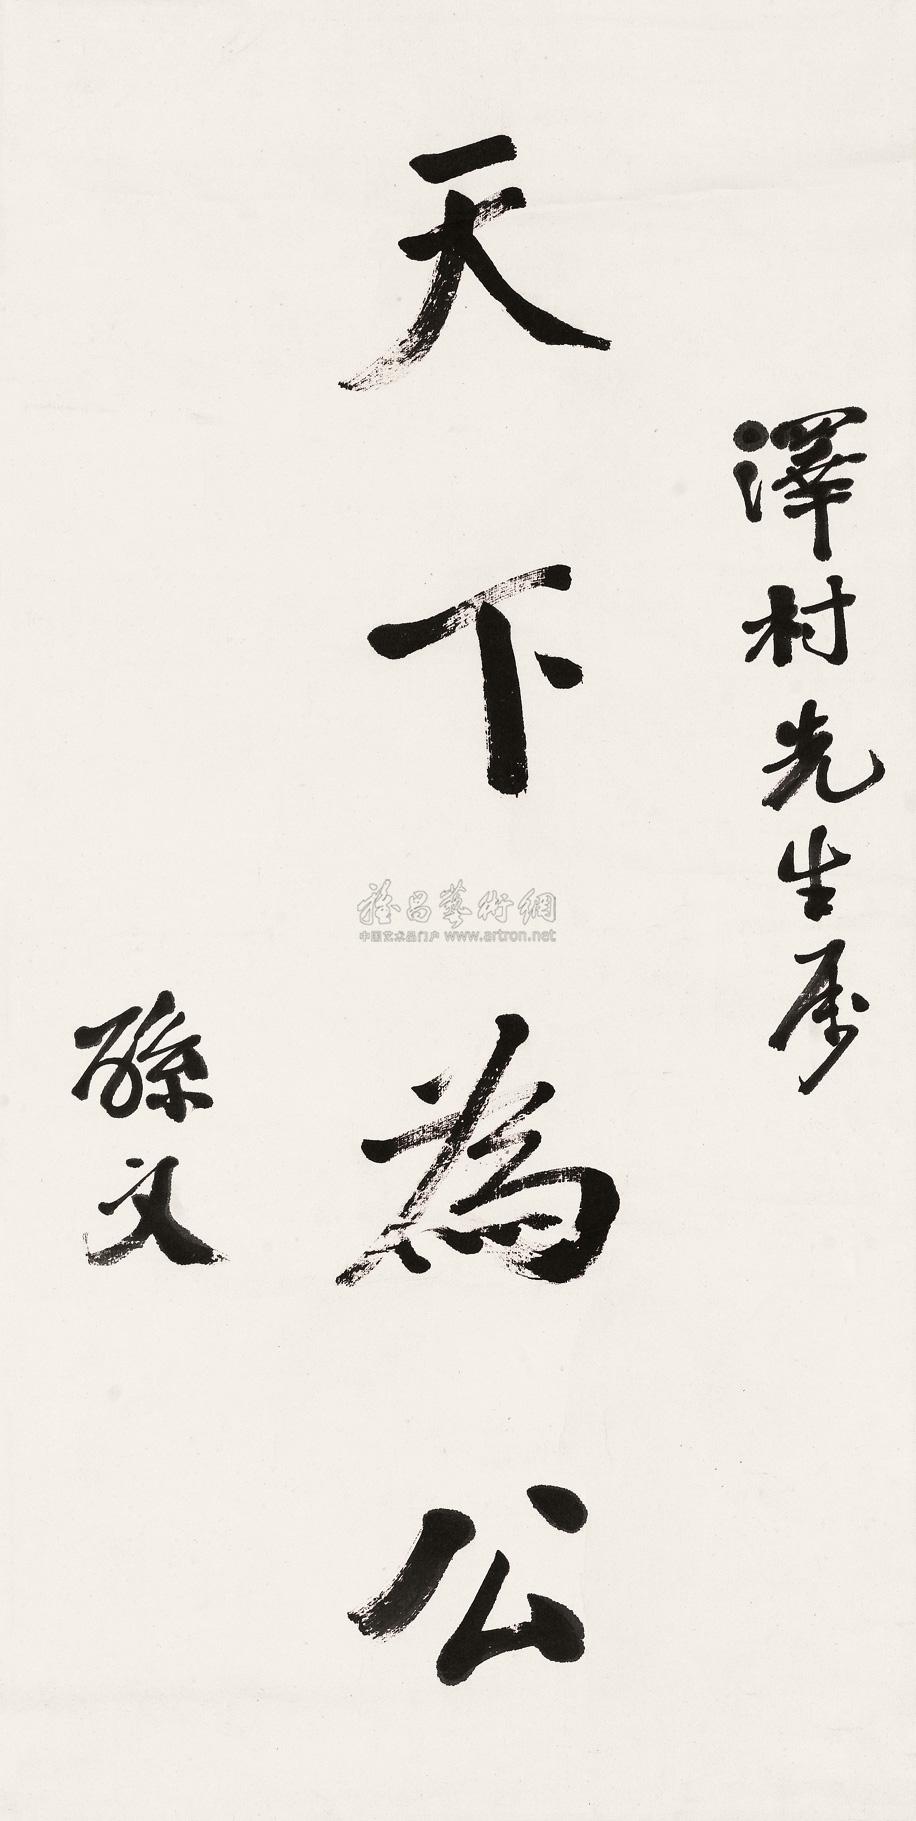 澤村先生屬
天下為公
孫文
雅昌藝術網
中国艺术品门户 www.artron.net